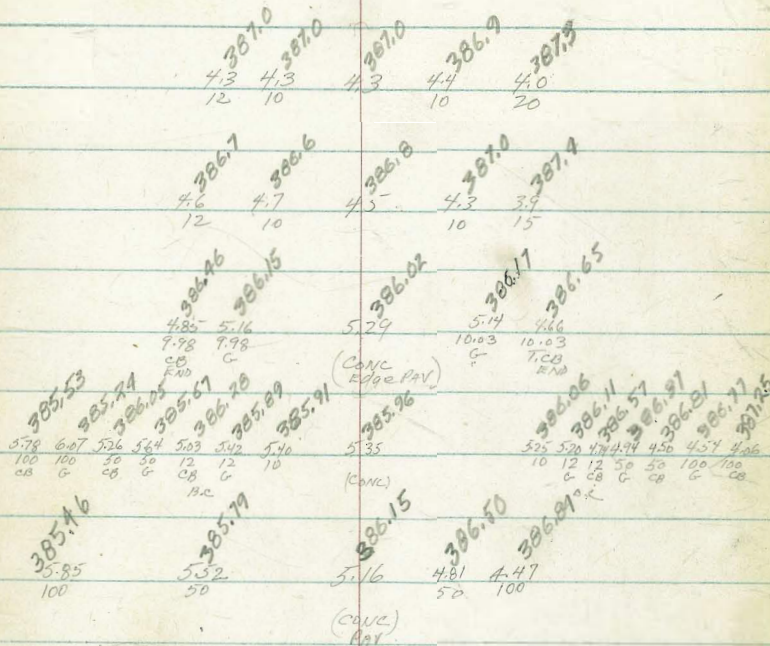 387.0 387.0 387.0 386.9 387.3
4.3 4.3 4.3 4.4 4.0
12 10 10 20
386.7 386.6 386.8 387.0 387.4
4.6 4.7 4.5 4.3 3.9
12 10 10 15
386.46 386.15 386.02 386.17 386.65
4.85 5.16 5.29 5.14 4.66
9.98 9.98 10.03 10.03
CB G (CONC G T.CB
END Edge PAV) END
385.53 385.24 386.05 385.67 386.28 385.89 385.91 385.96 386.06 386.11 386.57 386.37 386.81 386.77 387.25
5.78 6.07 5.26 5.64 5.03 5.42 5.40 5.35 5.25 5.20 4.74 4.94 4.50 4.54 4.06
100 100 50 50 12 12 10 10 12 12 50 50 100 100
CB G CB G CB G (CONC) G CB G CB G CB
B.C B.C
385.46 385.79 386.15 386.50 386.84
5.85 5.52 5.16 4.81 4.47
100 50 50 100
(CONC
PAV